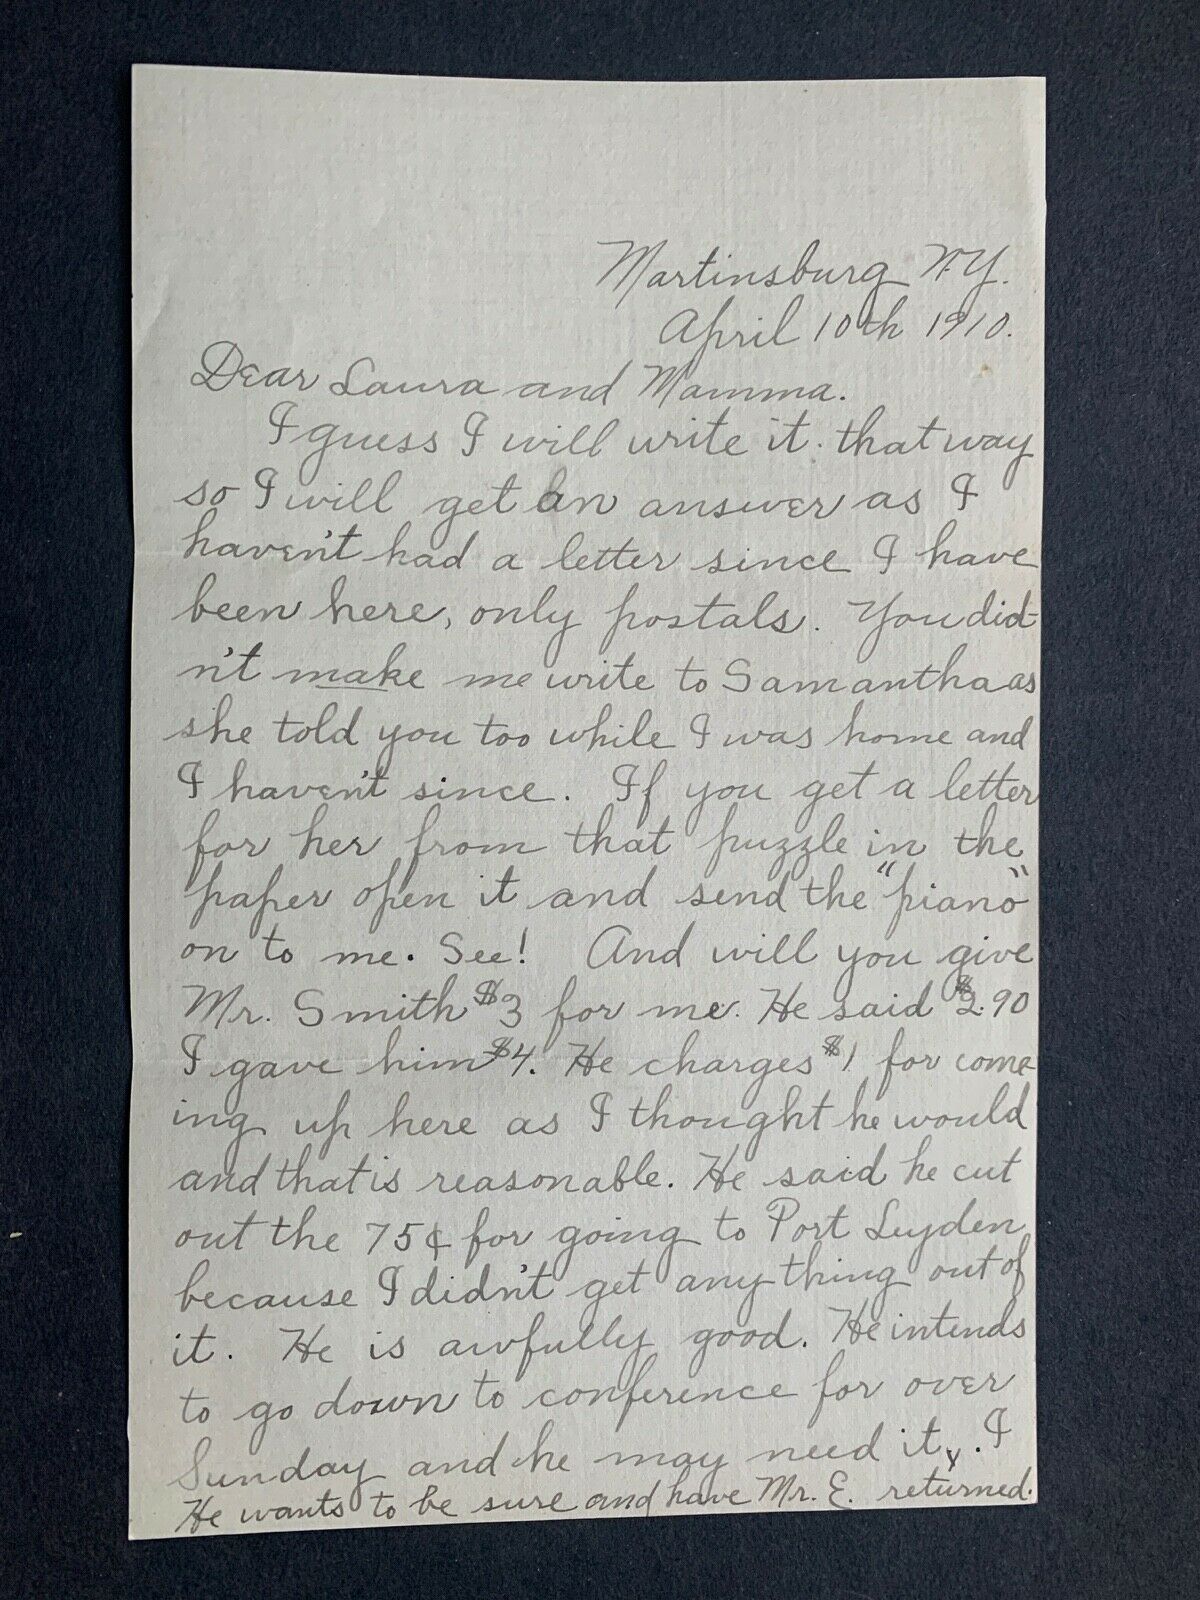 Martinsburg N.Y.
April 10th 1910.
Dear Laura and Mamma.
I guess I will write it that way
so I will get an answer as I
haven't had a letter since I have
been here, only postals. You did-
n't make me write to Samantha as
she told you too while I was home and
I haven't since. If you get a letter
for her from that puzzle in the
paper open it and send the "piano"
on to me. See! And will you give
Mr. Smith $3 for me. He said $2.90
I gave him $4. He charges $1 for come-
ing up here as I thought he would
and that is reasonable. He said he cut
out the 75¢ for going to Port Leyden
because I didn't get any thing out of
it. He is awfully good. He intends
to go down to conference for over
Sunday and he may need it. I
He wants to be sure and have Mr. E. returned.